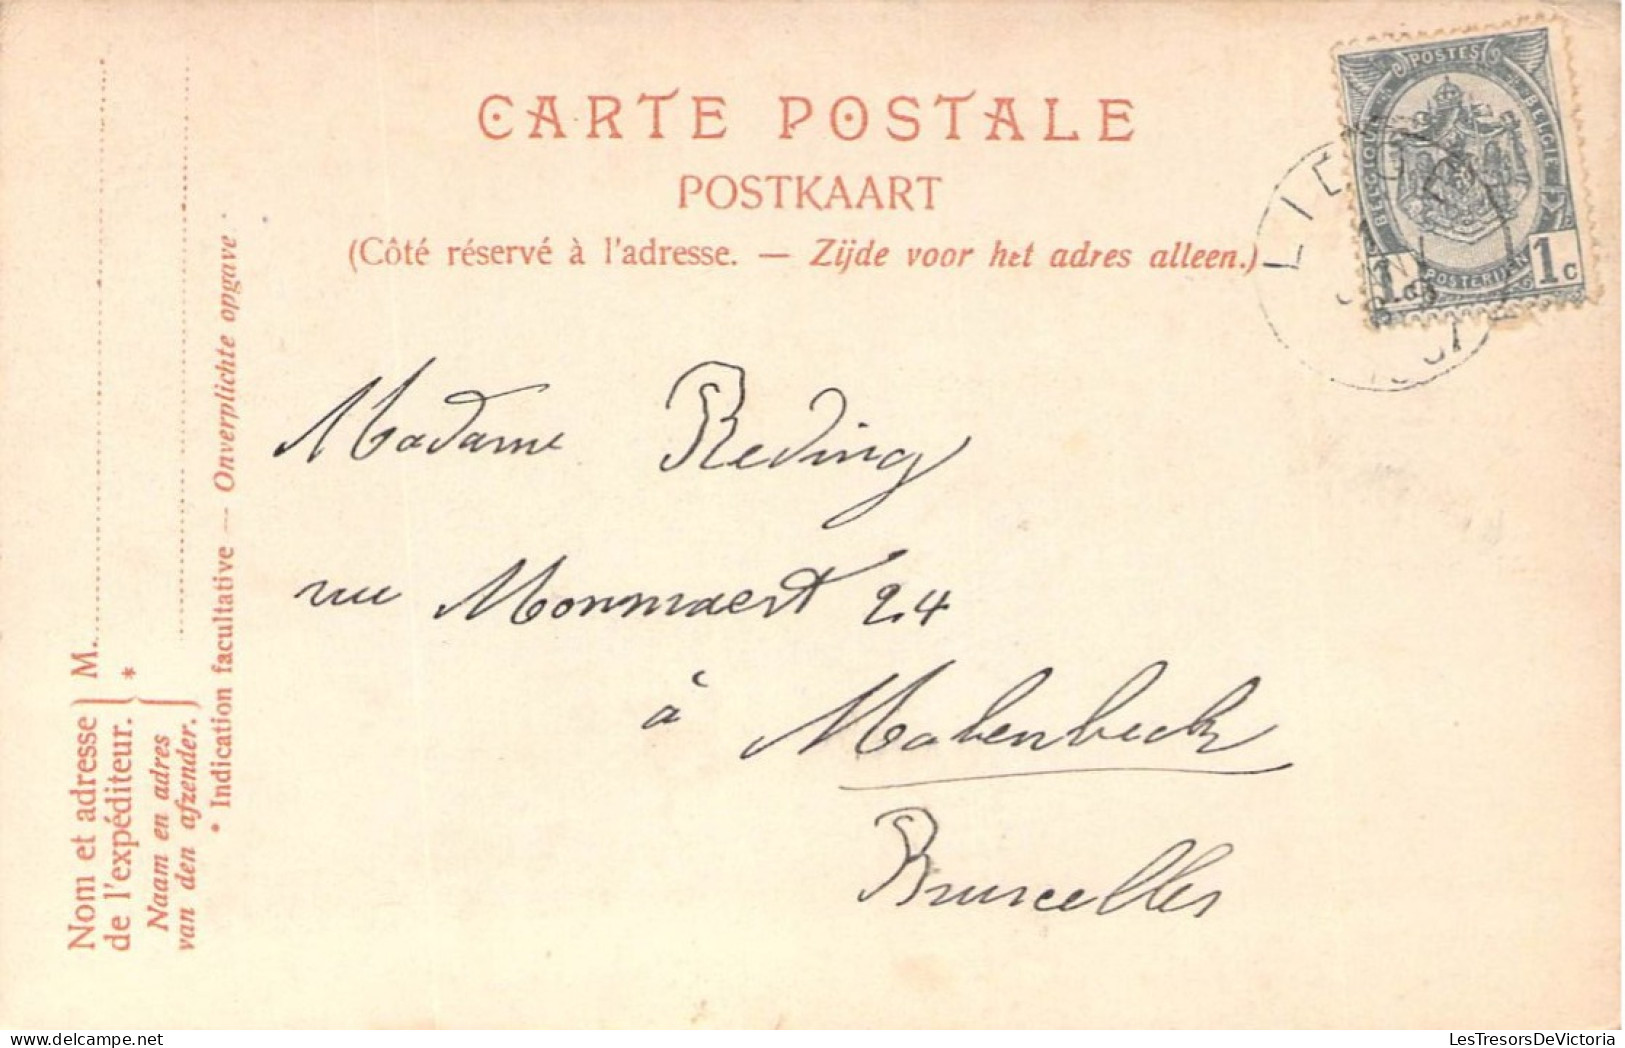 CARTE POSTALE
POSTKAART
(Côté réservé à l'adresse. — Zijde voor het adres alleen.)
POSTES
BELGIE
POSTERIJEN
1 1c
LIEGE
Madame Reding
rue Mommaert 24
à Molenbeck
Bruxelles
Nom et adresse
de l'expéditeur.
M.
*
Naam en adres
van den afzender.
* Indication facultative — Onverplichte opgave
LesTresorsDeVictoria